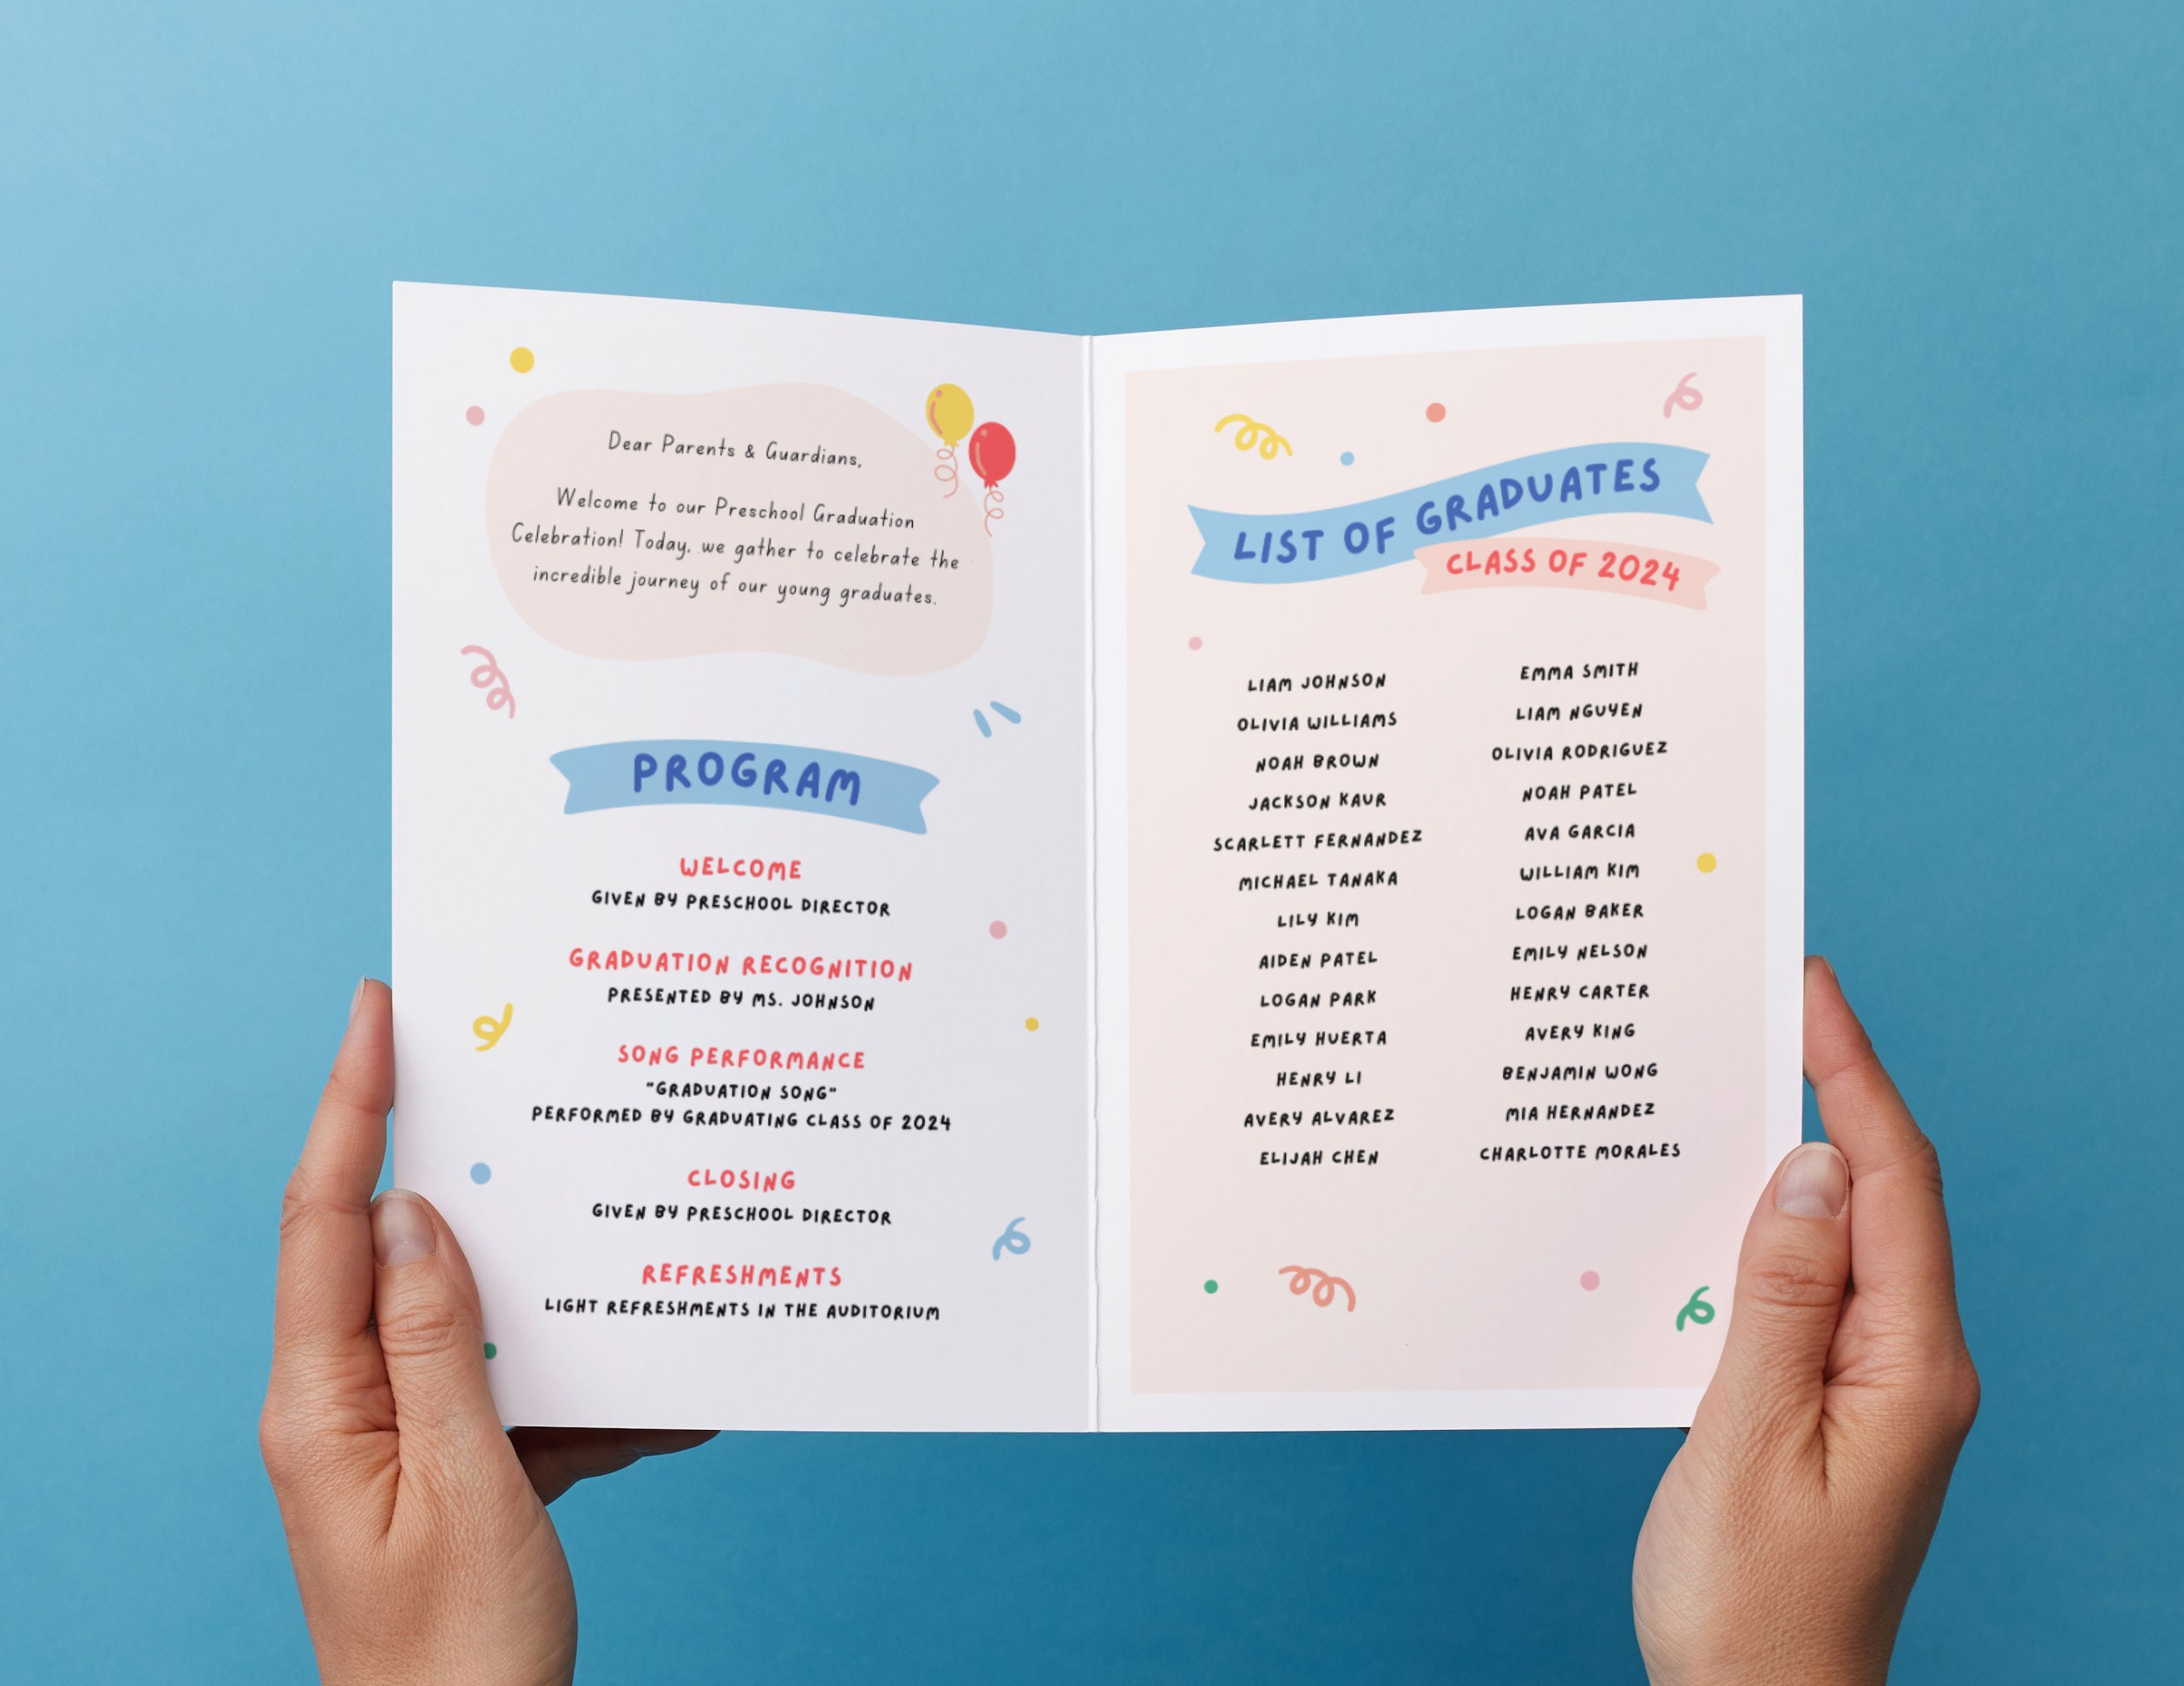 Dear Parents & Guardians,
Welcome to our Preschool Graduation
Celebration! Today, we gather to celebrate the
incredible journey of our young graduates.
PROGRAM
WELCOME
GIVEN BY PRESCHOOL DIRECTOR
GRADUATION RECOGNITION
PRESENTED BY MS. JOHNSON
SONG PERFORMANCE
"GRADUATION SONG"
PERFORMED BY GRADUATING CLASS OF 2024
CLOSING
GIVEN BY PRESCHOOL DIRECTOR
REFRESHMENTS
LIGHT REFRESHMENTS IN THE AUDITORIUM
LIST OF GRADUATES
CLASS OF 2024
LIAM JOHNSON
OLIVIA WILLIAMS
NOAH BROWN
JACKSON KAUR
SCARLETT FERNANDEZ
MICHAEL TANAKA
LILY KIM
AIDEN PATEL
LOGAN PARK
EMILY HUERTA
HENRY LI
AVERY ALVAREZ
ELIJAH CHEN
EMMA SMITH
LIAM NGUYEN
OLIVIA RODRIGUEZ
NOAH PATEL
AVA GARCIA
WILLIAM KIM
LOGAN BAKER
EMILY NELSON
HENRY CARTER
AVERY KING
BENJAMIN WONG
MIA HERNANDEZ
CHARLOTTE MORALES